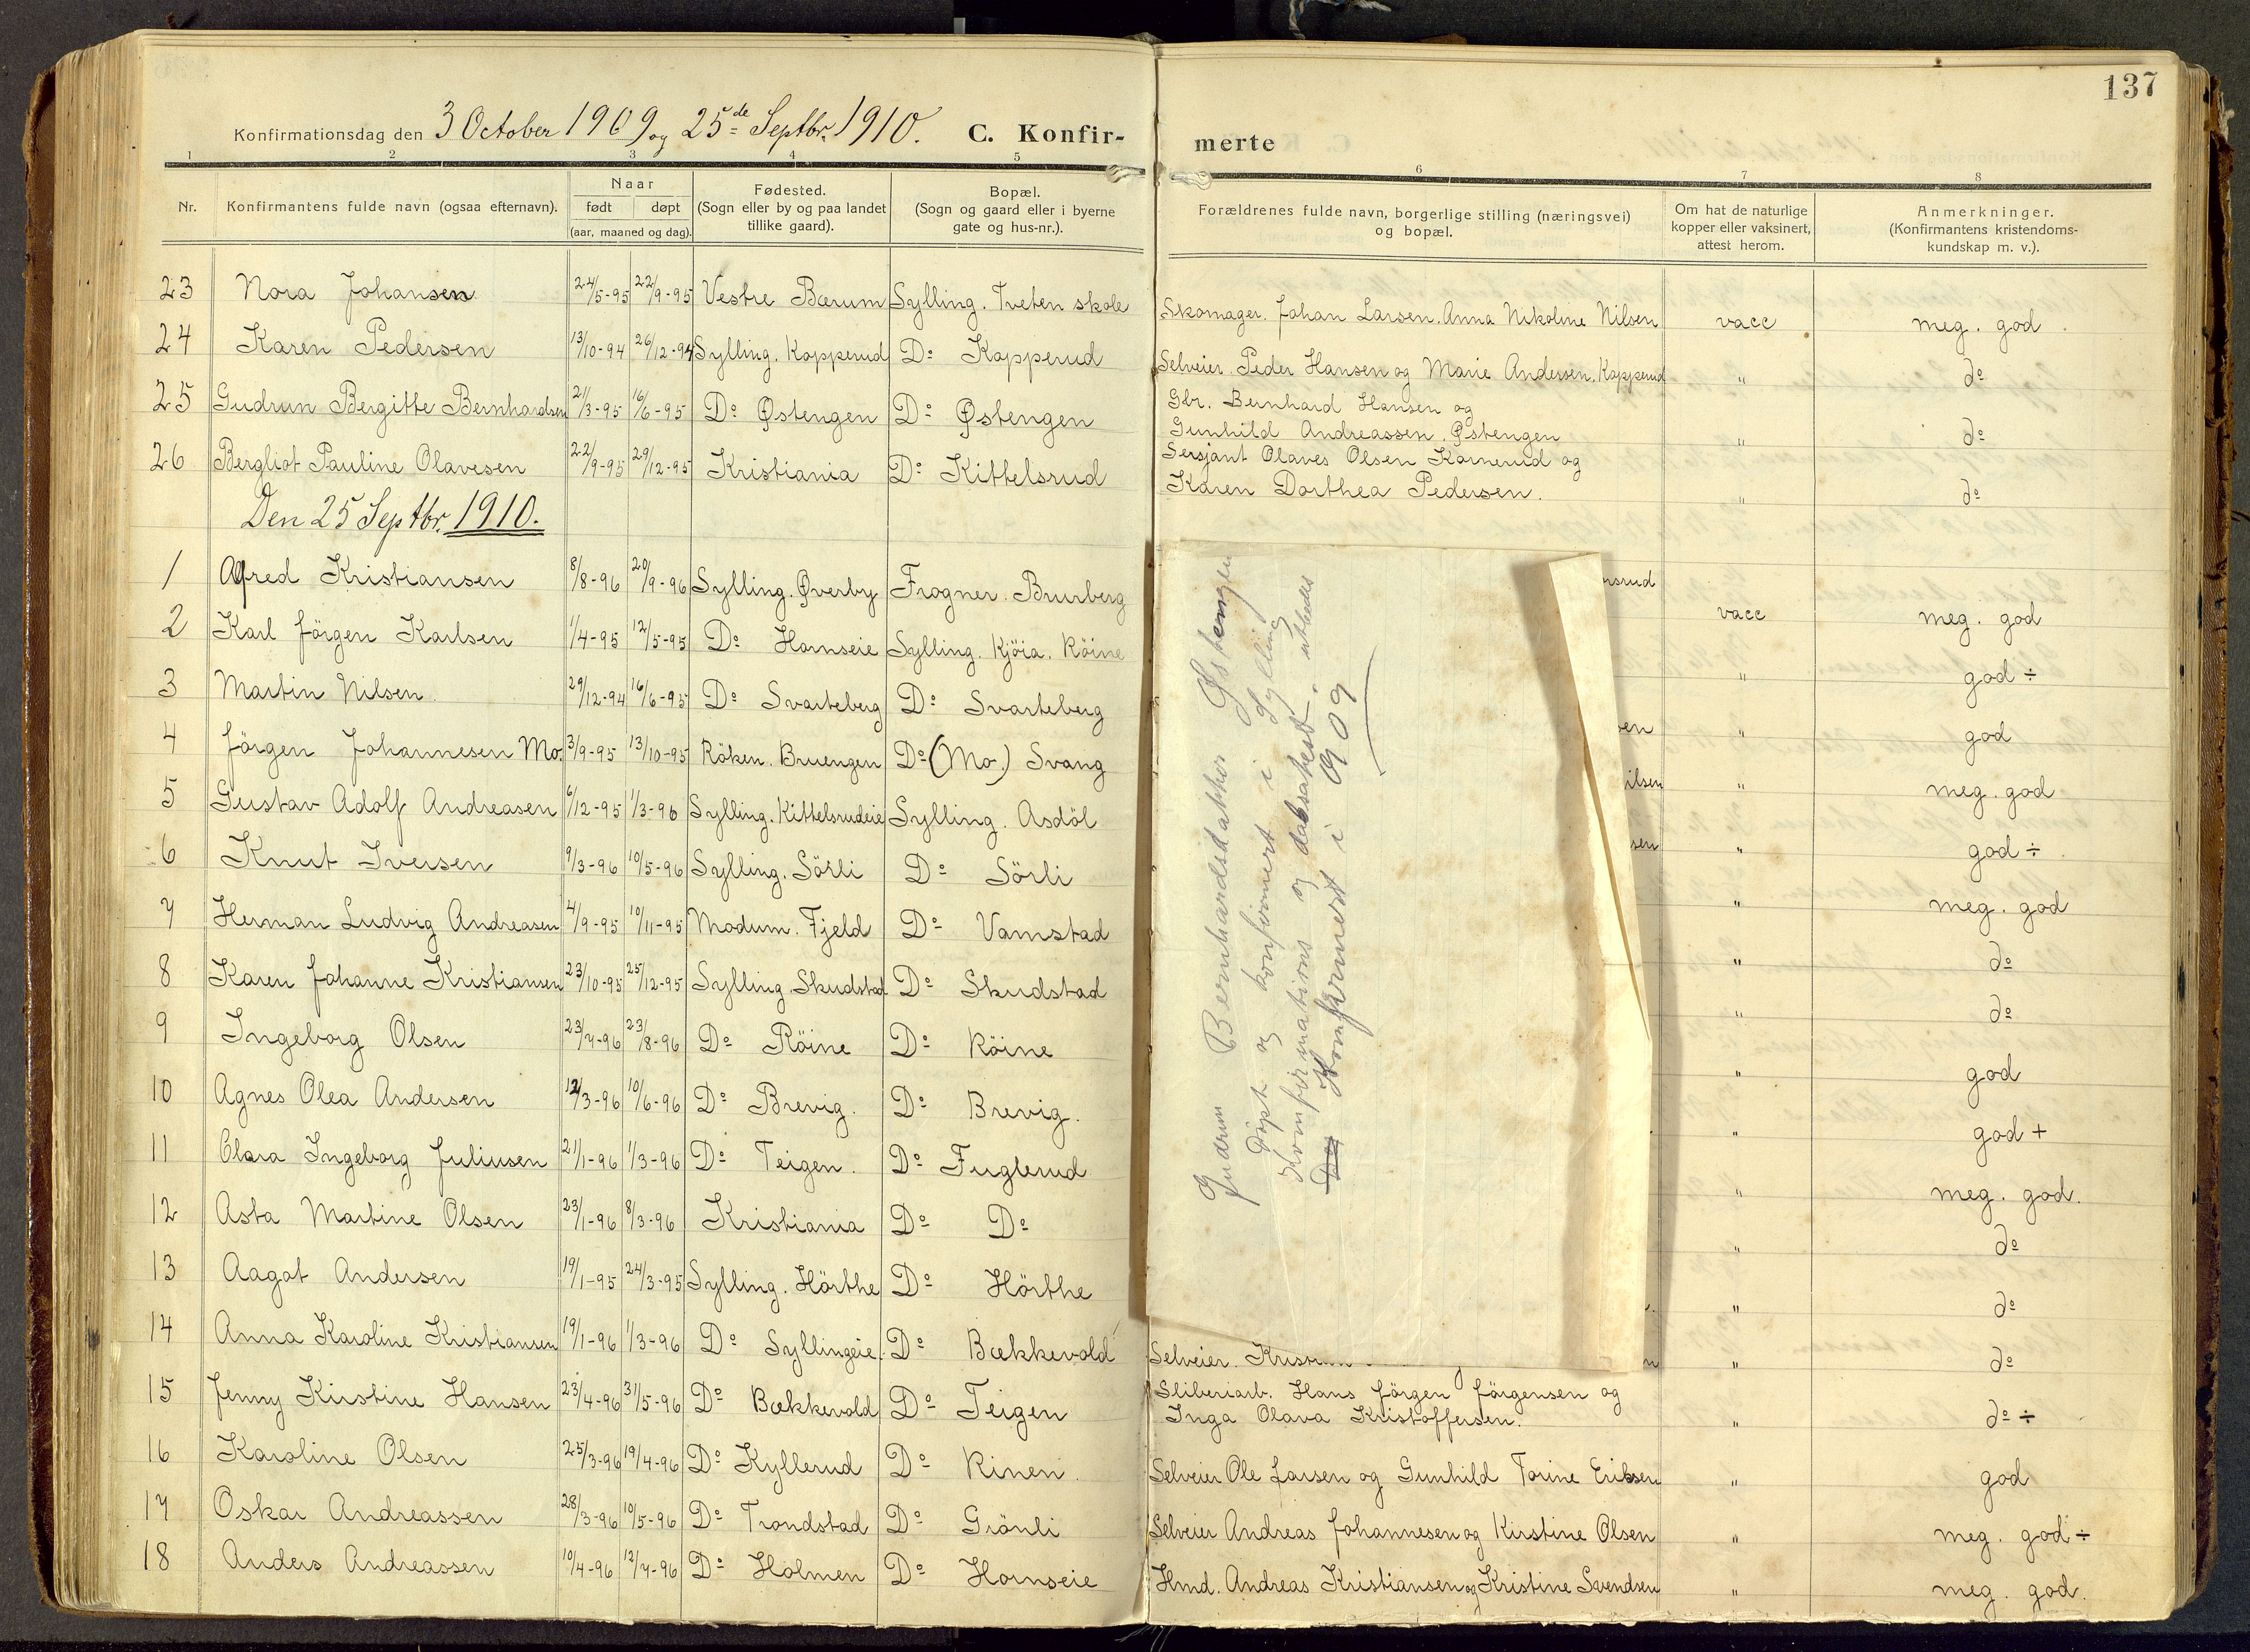 137
Konfirmationsdag den 3 October 1909 og 25de Septbr. 1910. C. Konfirmerte
1 2 3 4 5 6 7 8
Nr. Konfirmantens fulde navn (ogsaa efternavn). Naar født døpt (aar, maaned og dag). Fødested. (Sogn eller by og paa landet tillike gaard). Bopæl. (Sogn og gaard eller i byerne gate og hus-nr.). Forældrenes fulde navn, borgerlige stilling (næringsvei) og bopæl. Om hat de naturlige kopper eller vaksinert, attest herom. Anmerkninger. (Konfirmantens kristendoms-kundskap m. v.).
23 Nora Johansen 24/5-95 22/9-95 Vestre Bærum Sylling. Tveten skole Skomager. Johan Larsen. Anna Nikoline Nilsen vacc meg. god
24 Karen Pedersen 13/10-94 26/12-94 Sylling. Kopperud Do Kopperud Selveier. Peder Hansen og Marie Andersen. Kopperud " do
25 Gudrun Bergitte Bernhardsen 21/3-95 16/6-95 Do Østengen Do Østengen Gbr. Bernhard Hansen og
Gunhild Andreassen. Østengen " do
26 Bergliot Pauline Olavesen 22/9-95 29/12-95 Kristiania Do Kittelsrud Sersjant Olaves Olsen Kornerud og
Karen Dorthea Pedersen. " do
Den 25 Septbr. 1910.
1 Alfred Kristiansen 8/8-96 20/9-96 Sylling. Øverby Frogner. Brurberg rsrud vacc meg. god
2 Karl Jörgen Karlsen 1/4-95 12/5-95 Do Hornseie Sylling. Kjöia. Röine " god ÷
3 Martin Nilsen. 29/12-94 16/6-95 Do Svarteberg Do Svarteberg en " god
4 Jörgen Johannesen Mo. 3/9-95 13/10-95 Röken. Bruengen Do (Mo.) Svang ilsen " meg. god
5 Gustav Adolf Andreasen 6/12-95 1/3-96 Sylling. Kittelsrudeie Sylling. Asdöl sen " god ÷
6 Knut Iversen 9/3-96 10/5-96 Sylling. Sörli Do Sörli " meg. god
7 Herman Ludvig Andreasen 4/9-95 10/11-95 Modum. Fjeld Do Vamstad " do
8 Karen Johanne Kristiansen 23/10-95 25/12-95 Sylling. Skudstad Do Skudstad " do
9 Ingeborg Olsen 23/7-96 23/8-96 Do Röine Do Röine " god
10 Agnes Olea Andersen 12/3-96 10/6-96 Do Brevig. Do Brevig. " god +
11 Clara Ingeborg Juliusen 21/1-96 1/3-96 Do Teigen. Do Fuglerud " meg. god.
12 Asta Martine Olsen 23/1-96 8/3-96 Kristiania Do Do " do
13 Aagot Andersen 19/1-95 24/3-95 Sylling. Hörthe Do Hörthe " do
14 Anna Karoline Kristiansen 19/1-96 1/3-96 Do Syllingeie. Do Bækkevold Selveier. n " do
15 Jenny Kirstine Hansen 23/4-96 31/5-96 Do Bækkevold Do Teigen Sliberiarb. Hans Jörgen Jörgensen og
Inga Olava Kristoffersen. " do ÷
16 Karoline Olsen 25/3-96 19/4-96 Do Kyllerud Do Rinen. Selveier Ole Larsen og Gunhild Torine Eriksen " god
17 Oskar Andreassen 28/3-96 10/5-96 Do Trondstad Do Grönli Selveier Andreas Johannesen og Kirstine Olsen " meg. god ÷
18 Anders Andreassen 10/4-96 12/7-96 Do Holmen Do Hornseie Hmd. Andreas Kristiansen og Kristine Svendsen " meg. god.
Gudrun Bernhardsdatter Østengen
Döpt og konfirmert i Sylling
Konfirmations og daabsatest utbedes
Konfirmert i 1909